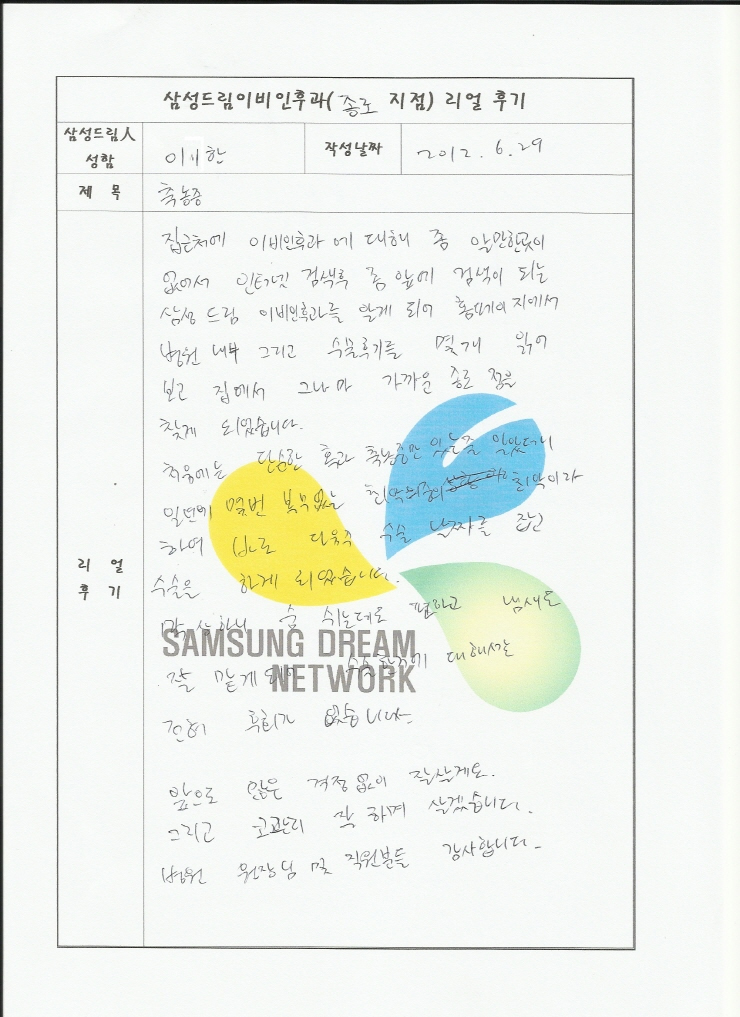 삼성드림이비인후과( 종로 지점) 리얼 후기
삼성드림人
성함
작성날짜 2012. 6. 29
제 목 축농증
리 얼
후 기
집근처에 이비인후과 에 대해 좀 알만한곳이
없어서 인터넷 검색후 좀 앞에 검색이 되는
삼성 드림 이비인후과를 알게 되어 홈페이지에서
병원 내부 그리고 수술후기를 몇개 읽어
보고 집에서 그나마 가까운 종로 점을
찾게 되었습니다.
처음에는 단순한 축농증만 있는줄 알았더니
일년에 몇번 최악이라
하여 바로 다음주 수술 날짜를 잡고
수술을 하게 되었습니다.
막상하니 숨 쉬는데도 편하고 냄새도
잘 맡게되어 대해서는
전혀 후회가 없습니다.
앞으로 걱정 없이 잘살게요.
그리고 코관리 잘 하며 살겠습니다.
병원 원장님 및 직원분들 감사합니다.
SAMSUNG DREAM
NETWORK